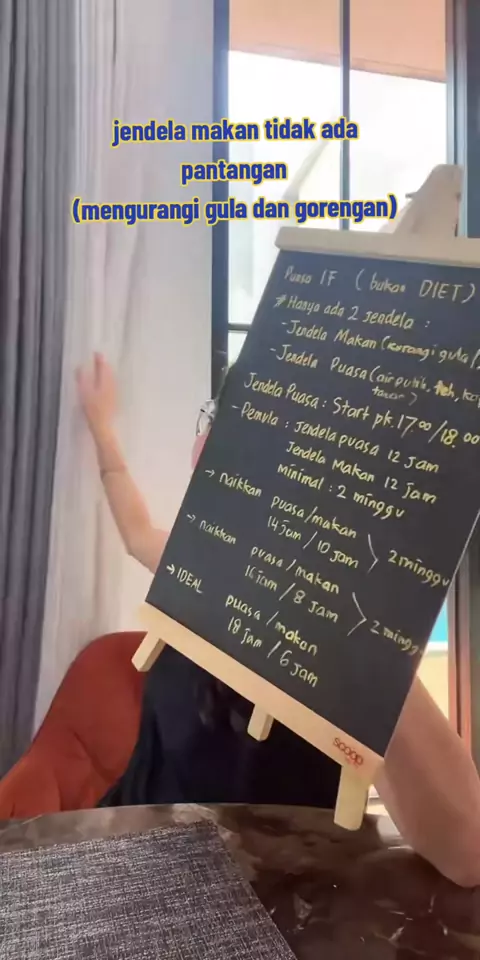 jendela makan tidak ada
pantangan
(mengurangi gula dan gorengan)
Puasa IF (bukan DIET)
# Hanya ada 2 Jendela :
- Jendela Makan (kurangi gula/
- Jendela Puasa (air putih, teh, ko
tawar)
Jendela Puasa : Start pk. 17.00/18.00
- Pemula : Jendela puasa 12 Jam
Jendela Makan 12 Jam
minimal : 2 minggu
→ naikkan puasa/makan
14 jam / 10 Jam > 2 minggu
→ naikkan puasa/makan
16 jam / 8 Jam > 2 mingg
→ IDEAL puasa/makan
18 Jam / 6 Jam
scoop